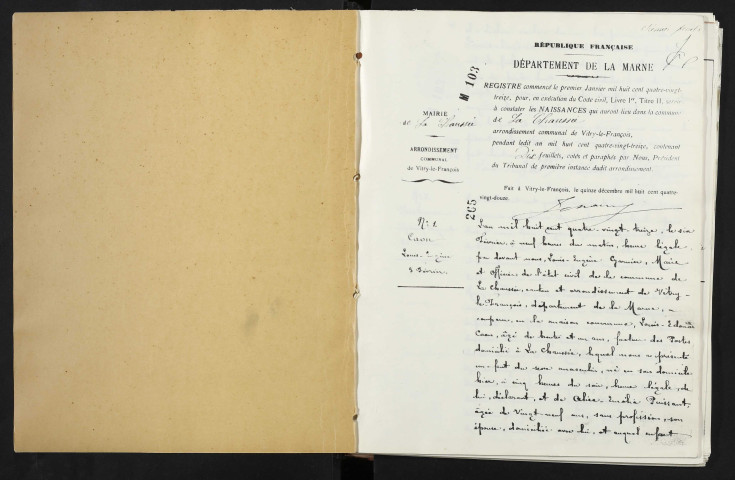 RÉPUBLIQUE FRANÇAISE
DÉPARTEMENT DE LA MARNE
M 103
REGISTRE commencé le premier Janvier mil huit cent quatre-vingt-
treize, pour, en exécution du Code civil, Livre Ier, Titre II, servir
à constater les NAISSANCES qui auront lieu dans la commune
de La Chaussée
arrondissement communal de Vitry-le-François,
pendant ledit an mil huit cent quatre-vingt-treize, contenant
Dix feuillets, cotés et paraphés par Nous, Président
du Tribunal de première instance dudit arrondissement.
Fait à Vitry-le-François, le quinze décembre mil huit cent quatre-
vingt-douze.
MAIRIE
de La Chaussée
ARRONDISSEMENT
COMMUNAL
de Vitry-le-François
265
N° 1
Caon
Louis-Eugène
L'an mil huit cent quatre-vingt-treize, le six
Février à neuf heures du matin, heure légale
par devant nous, Louis-Eugène Garnier, Maire
et Officier de l'état civil de la commune de
La Chaussée, canton et arrondissement de Vitry-
le-François, département de la Marne, a
comparu, en la maison commune, Louis-Edouard
Caon, âgé de trente et un ans, facteur des Postes
domicilié à La Chaussée, lequel nous a présenté
un enfant du sexe masculin, né en son domicile
hier, à cinq heures du soir, heure légale, de
lui, déclarant, et de Puissant,
âgée de vingt-neuf ans, sans profession, son
épouse, domiciliée avec lui, et auquel enfant